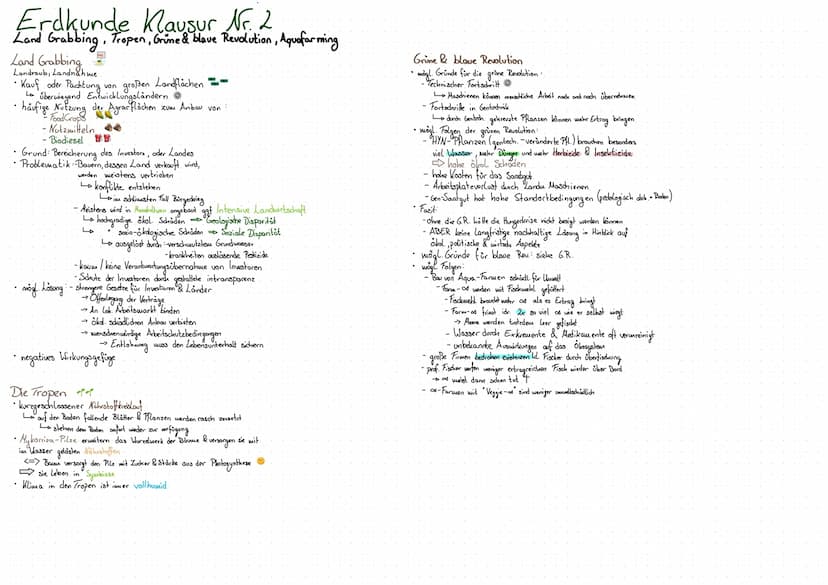 Erdkunde Klausur Nr. 2
Land Grabbing, Tropen, Grüne & blaue Revolution, Aquafarming
Land Grabbing
Landraub, Landnahme
• Kauf oder Pachtung von großen Landflächen
↳ überwiegend Entwicklungsländern
• häufige Nutzung der Agrarflächen zum Anbau von:
- FoodCrops
- Nutzmitteln
- Biodiesel
• Grund: Bereicherung des Investors, oder Landes
• Problematik: - Bauern, dessen Land verkauft wird,
werden meistens vertrieben
↳ konflikte entstehen
↳ im schlimmsten Fall Bürgerkrieg
- Meistens wird in Monokulturen angebaut ggf. Intensive Landwirtschaft
↳ hochgradige ökol. Schäden ⇒ Geologische Disparität
↳ " sozio-ökologische Schäden ⇒ Soziale Disparität
↳ ausgelöst durch - verschmutztem Grundwasser
- krankheiten auslösende Pestizide
- kaum / keine Verantwortungsübernahme von Investoren
- Schutz der Investoren durch gestaltete intransparenz
• mögl. Lösung: - strengere Gesetze für Investoren & Länder
→ Offenlegung der Verträge
→ An lok. Arbeitsmarkt binden
→ ökol. schädlichen Anbau verbieten
→ menschenwürdige Arbeitsschutzbedingungen
→ Entlohnung muss den Lebensunterhalt sichern
• negatives Wirkungsgefüge
Die Tropen
• kurzgeschlossener Nährstoffkreislauf
↳ auf den Boden fallende Blätter & Pflanzen werden rasch zersetzt
↳ stehen dem Boden sofort wieder zur verfügung
• Mykorriza-Pilze erweitern das Wurzelwerk der Bäume & versorgen sie mit
im Wasser gelösten Nährstoffen
⇔ Baum versorgt den Pilz mit Zucker & Stärke aus der Photosynthese
⇒ sie leben in Symbiose
• Klima in den Tropen ist immer vollhumid
Grüne & blaue Revolution
• mögl. Gründe für die grüne Revolution:
- Technischer Fortschritt
↳ Maschienen können menschliche Arbeit nach und nach übernehmen
- Fortschritte in Gentechnik
↳ durch Gentech. gekreuzte Pflanzen können mehr Ertrag bringen
• mögl. Folgen der grünen Revolution:
- HYV-Pflanzen (gentech.-veränderte Pfl.) brauchen besonders
viel Wasser, mehr Dünger und mehr Herbizide & Insektizide
⇒ hohe ökol. Schäden
- hohe Kosten für das Saatgut
- Arbeitsplatzverlust durch Landw. Maschienen
- Gen-Saatgut hat hohe Standortbedingungen (petologisch d.h. - Boden)
• Fazit:
- ohne die G.R. hätte die Hungerkrise nicht besiegt werden können
- ABER keine langfristige nachhaltige Lösung in Hinblick auf
ökol., politische & wirtsch. Aspekte
• mögl. Gründe für blaue Rev.: siehe G.R.
• mögl. Folgen:
- Bau von Aqua-Farmen schädl. für Umwelt
- Farm-∝ werden mit Fischmehl gefüttert
- Fischmehl braucht mehr ∝ als es Ertrag bringt
- Farm-∝ frisst ihr 2x so viel ∝ wie er selbst wiegt
→ Meere werden trotzdem leer gefischt
- Wasser durch Exkremente & Medikamente oft verunreinigt
- unbekannte Auswirkungen auf das Ökosystem
- große Firmen bedrohen einheim. kl. Fischer durch Überfischung
- prof. Fischer werfen weniger ertragreichen Fisch wieder über Bord
→ ∝ meist dann schon tot †
- ∝-Farmen mit "Veggie-∝" sind weniger umweltschädlich